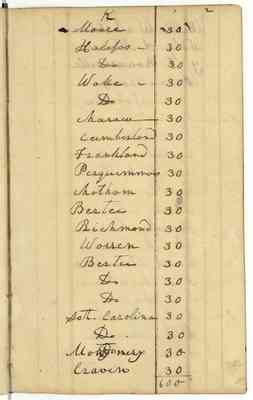 K 2
Moore 30
Halifax 30
Do 30
Wake 30
Do 30
Charaw 30
Cumberland 30
Frankland 30
Perquimmos 30
Chatham 30
Bertee 30
Richmond 30
Worren 30
Bertee 30
Do 30
Do 30
Soth Carolina 30
Do 30
Montgomery 30
Craven 30
600